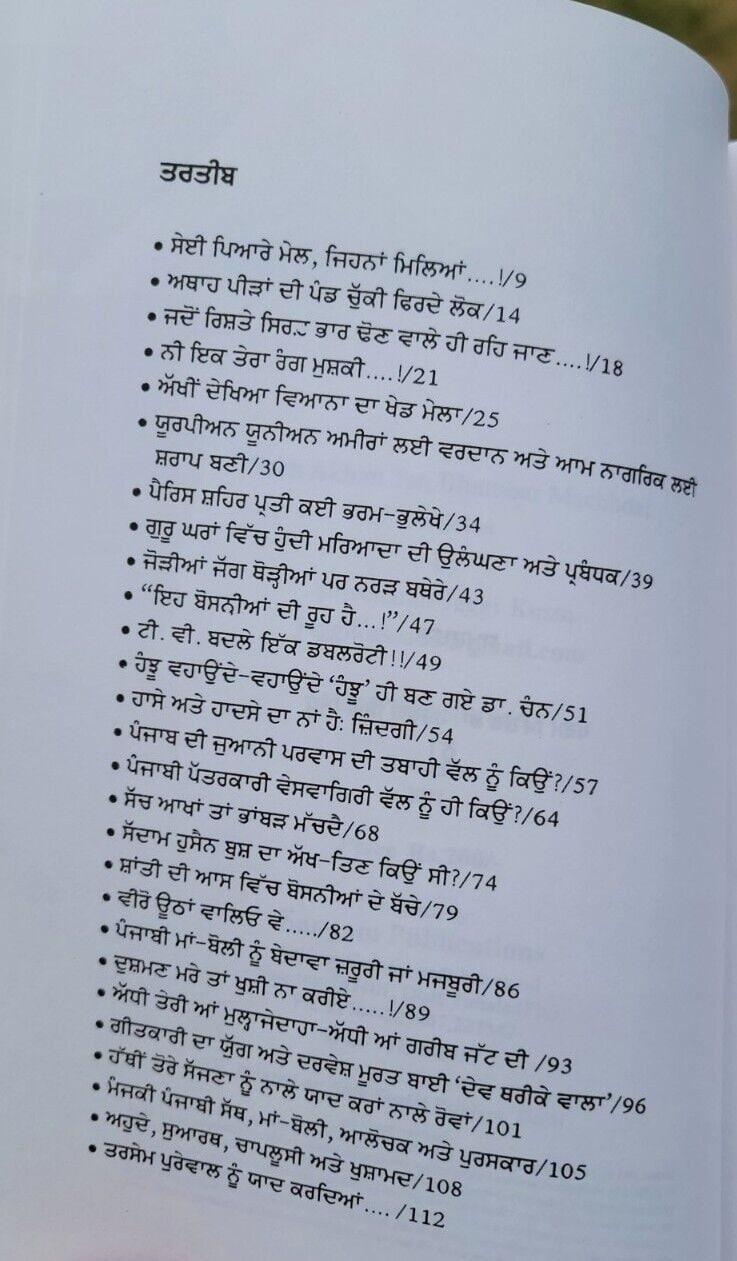 ਤਰਤੀਬ
• ਸੇਈ ਪਿਆਰੇ ਮੇਲ, ਜਿਹਨਾਂ ਮਿਲਿਆਂ....!/9
• ਅਥਾਹ ਪੀੜਾਂ ਦੀ ਪੰਡ ਚੁੱਕੀ ਫਿਰਦੇ ਲੋਕ/14
• ਜਦੋਂ ਰਿਸ਼ਤੇ ਸਿਰਫ਼ ਭਾਰ ਢੋਣ ਵਾਲੇ ਹੀ ਰਹਿ ਜਾਣ....!/18
• ਨੀ ਇਕ ਤੇਰਾ ਰੰਗ ਮੁਸ਼ਕੀ....!/21
• ਅੱਖੀਂ ਦੇਖਿਆ ਵਿਆਨਾ ਦਾ ਖੇਡ ਮੇਲਾ/25
• ਯੂਰਪੀਅਨ ਯੂਨੀਅਨ ਅਮੀਰਾਂ ਲਈ ਵਰਦਾਨ ਅਤੇ ਆਮ ਨਾਗਰਿਕ ਲਈ
ਸ਼ਰਾਪ ਬਣੀ/30
• ਪੈਰਿਸ ਸ਼ਹਿਰ ਪ੍ਰਤੀ ਕਈ ਭਰਮ-ਭੁਲੇਖੇ/34
• ਗੁਰੂ ਘਰਾਂ ਵਿੱਚ ਹੁੰਦੀ ਮਰਿਆਦਾ ਦੀ ਉਲੰਘਣਾ ਅਤੇ ਪ੍ਰਬੰਧਕ/39
• ਜੋੜੀਆਂ ਜੱਗ ਥੋੜ੍ਹੀਆਂ ਪਰ ਨਰੜ ਬਥੇਰੇ/43
• “ਇਹ ਬੋਸਨੀਆਂ ਦੀ ਰੂਹ ਹੈ...!”/47
• ਟੀ. ਵੀ. ਬਦਲੇ ਇੱਕ ਡਬਲਰੋਟੀ!!/49
• ਹੰਝੂ ਵਹਾਉਂਦੇ-ਵਹਾਉਂਦੇ ‘ਹੰਝੂ’ ਹੀ ਬਣ ਗਏ ਡਾ. ਚੰਨ/51
• ਹਾਸੇ ਅਤੇ ਹਾਦਸੇ ਦਾ ਨਾਂ ਹੈ: ਜ਼ਿੰਦਗੀ/54
• ਪੰਜਾਬ ਦੀ ਜੁਆਨੀ ਪਰਵਾਸ ਦੀ ਤਬਾਹੀ ਵੱਲ ਨੂੰ ਕਿਉਂ?/57
• ਪੰਜਾਬੀ ਪੱਤਰਕਾਰੀ ਵੇਸਵਾਗਿਰੀ ਵੱਲ ਨੂੰ ਹੀ ਕਿਉਂ?/64
• ਸੱਚ ਆਖਾਂ ਤਾਂ ਭਾਂਬੜ ਮੱਚਦੈ/68
• ਸੱਦਾਮ ਹੁਸੈਨ ਬੁਸ਼ ਦਾ ਅੱਖ-ਤਿਣ ਕਿਉਂ ਸੀ?/74
• ਸ਼ਾਂਤੀ ਦੀ ਆਸ ਵਿੱਚ ਬੋਸਨੀਆਂ ਦੇ ਬੱਚੇ/79
• ਵੀਰੋ ਊਠਾਂ ਵਾਲਿਓ ਵੇ...../82
• ਪੰਜਾਬੀ ਮਾਂ-ਬੋਲੀ ਨੂੰ ਬੇਦਾਵਾ ਜ਼ਰੂਰੀ ਜਾਂ ਮਜਬੂਰੀ/86
• ਦੁਸ਼ਮਣ ਮਰੇ ਤਾਂ ਖੁਸ਼ੀ ਨਾ ਕਰੀਏ.....!/89
• ਅੱਧੀ ਤੇਰੀ ਆਂ ਮੁਲ੍ਹਾਜੇਦਾਹਾ-ਅੱਧੀ ਆਂ ਗਰੀਬ ਜੱਟ ਦੀ /93
• ਗੀਤਕਾਰੀ ਦਾ ਯੁੱਗ ਅਤੇ ਦਰਵੇਸ਼ ਮੂਰਤ ਬਾਈ ‘ਦੇਵ ਥਰੀਕੇ ਵਾਲਾ’/96
• ਹੱਥੀਂ ਤੋਰੇ ਸੱਜਣਾ ਨੂੰ ਨਾਲੇ ਯਾਦ ਕਰਾਂ ਨਾਲੇ ਰੋਵਾਂ/101
• ਮੰਜਕੀ ਪੰਜਾਬੀ ਸੱਥ, ਮਾਂ-ਬੋਲੀ, ਆਲੋਚਕ ਅਤੇ ਪੁਰਸਕਾਰ/105
• ਅਹੁਦੇ, ਸੁਆਰਥ, ਚਾਪਲੂਸੀ ਅਤੇ ਖੁਸ਼ਾਮਦ/108
• ਤਰਸੇਮ ਪੁਰੇਵਾਲ ਨੂੰ ਯਾਦ ਕਰਦਿਆਂ.... /112